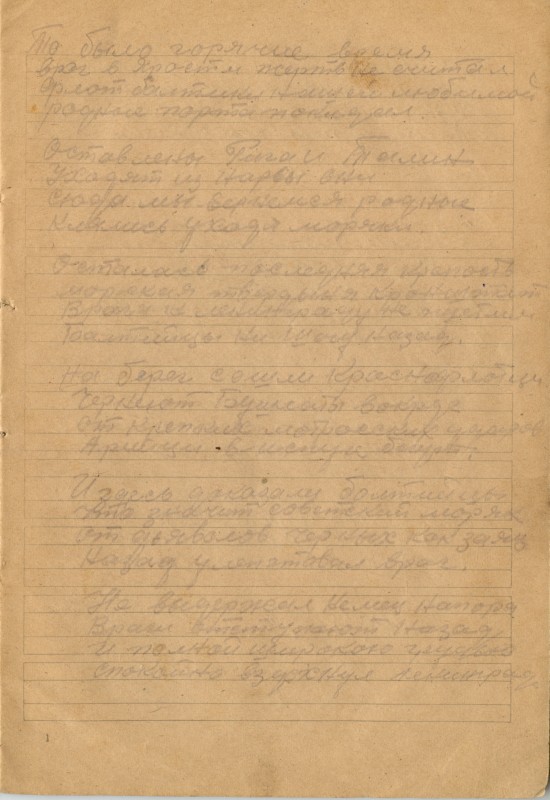 То было горячие время
враг в ярости жертв не считал
Флот балтики нашей любимой
родные порта покидал.
Оставлены Рига и Талин
Уходят из Нарвы они
сюда мы вернемся родные
Клялись уходя моряки.
Осталась последняя крепость
морская твердыня Кронштат
Врага к Ленинграду не пустим
Балтийцы ни шагу назад.
На берег сошли Краснофлотцы
Чернеют бушлаты вокруг
от крепких матросских ударов
Арийцы в
И здесь доказали болтийцы
что значит советский моряк
от дьяволов черных как заяц
Назад улепетовал враг.
Не выдержал немец напора
Враги отступают назад
И полной широкою грудью
спокойно вздохнул Ленинград
1